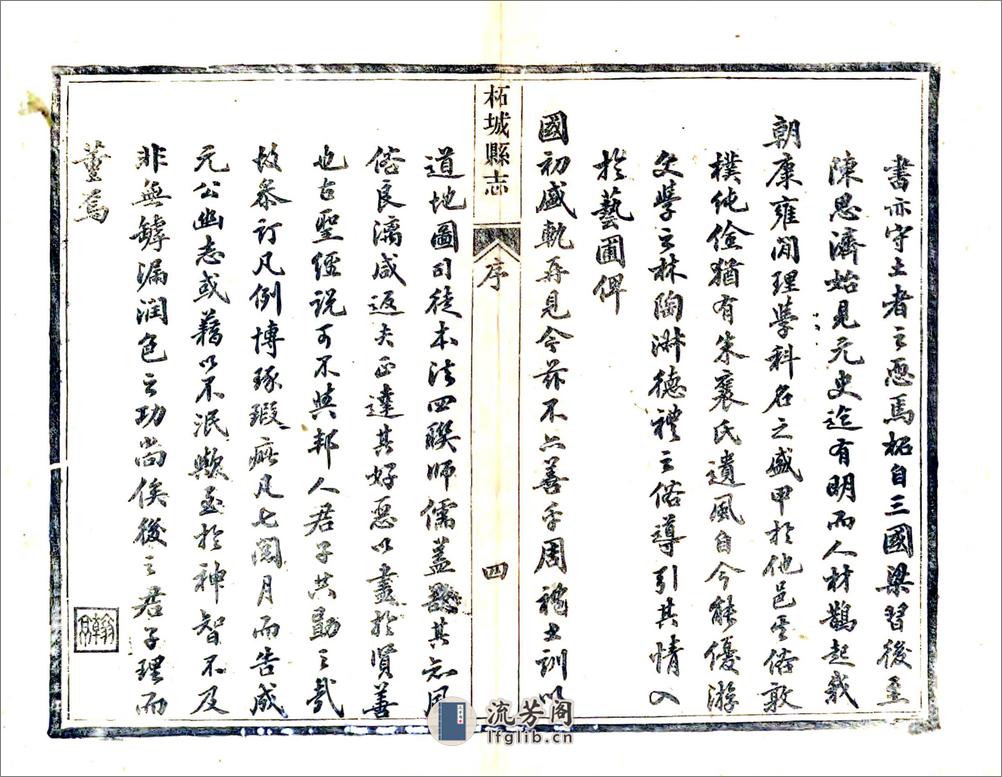 書亦守土者之恧焉柘自三國梁習後至
陳思濟始見元史迄有明而人材鵲起我
朝康雍間理學科名之盛甲於他邑雖俗敦
樸純儉猶有朱襄氏遺風自今能優游
文學之林陶淋德禮之俗導引其情入
於藝圃俾
國初盛軌再見今茲不亦善乎周禮土訓以
柘城縣志
序
四
道地圖司徒本法四聯師儒蓋其知風
俗良漓咸返夫正達其好惡以盡於賢善
也古聖經說可不與邦人君子共勖之哉
故參訂凡例博琢瑕疵凡七閱月而告成
元公幽志或藉以不泯歟至於神智不及
非無罅漏潤色之功尚俟後之君子理而
董焉
流芳阁
lfglib.cn